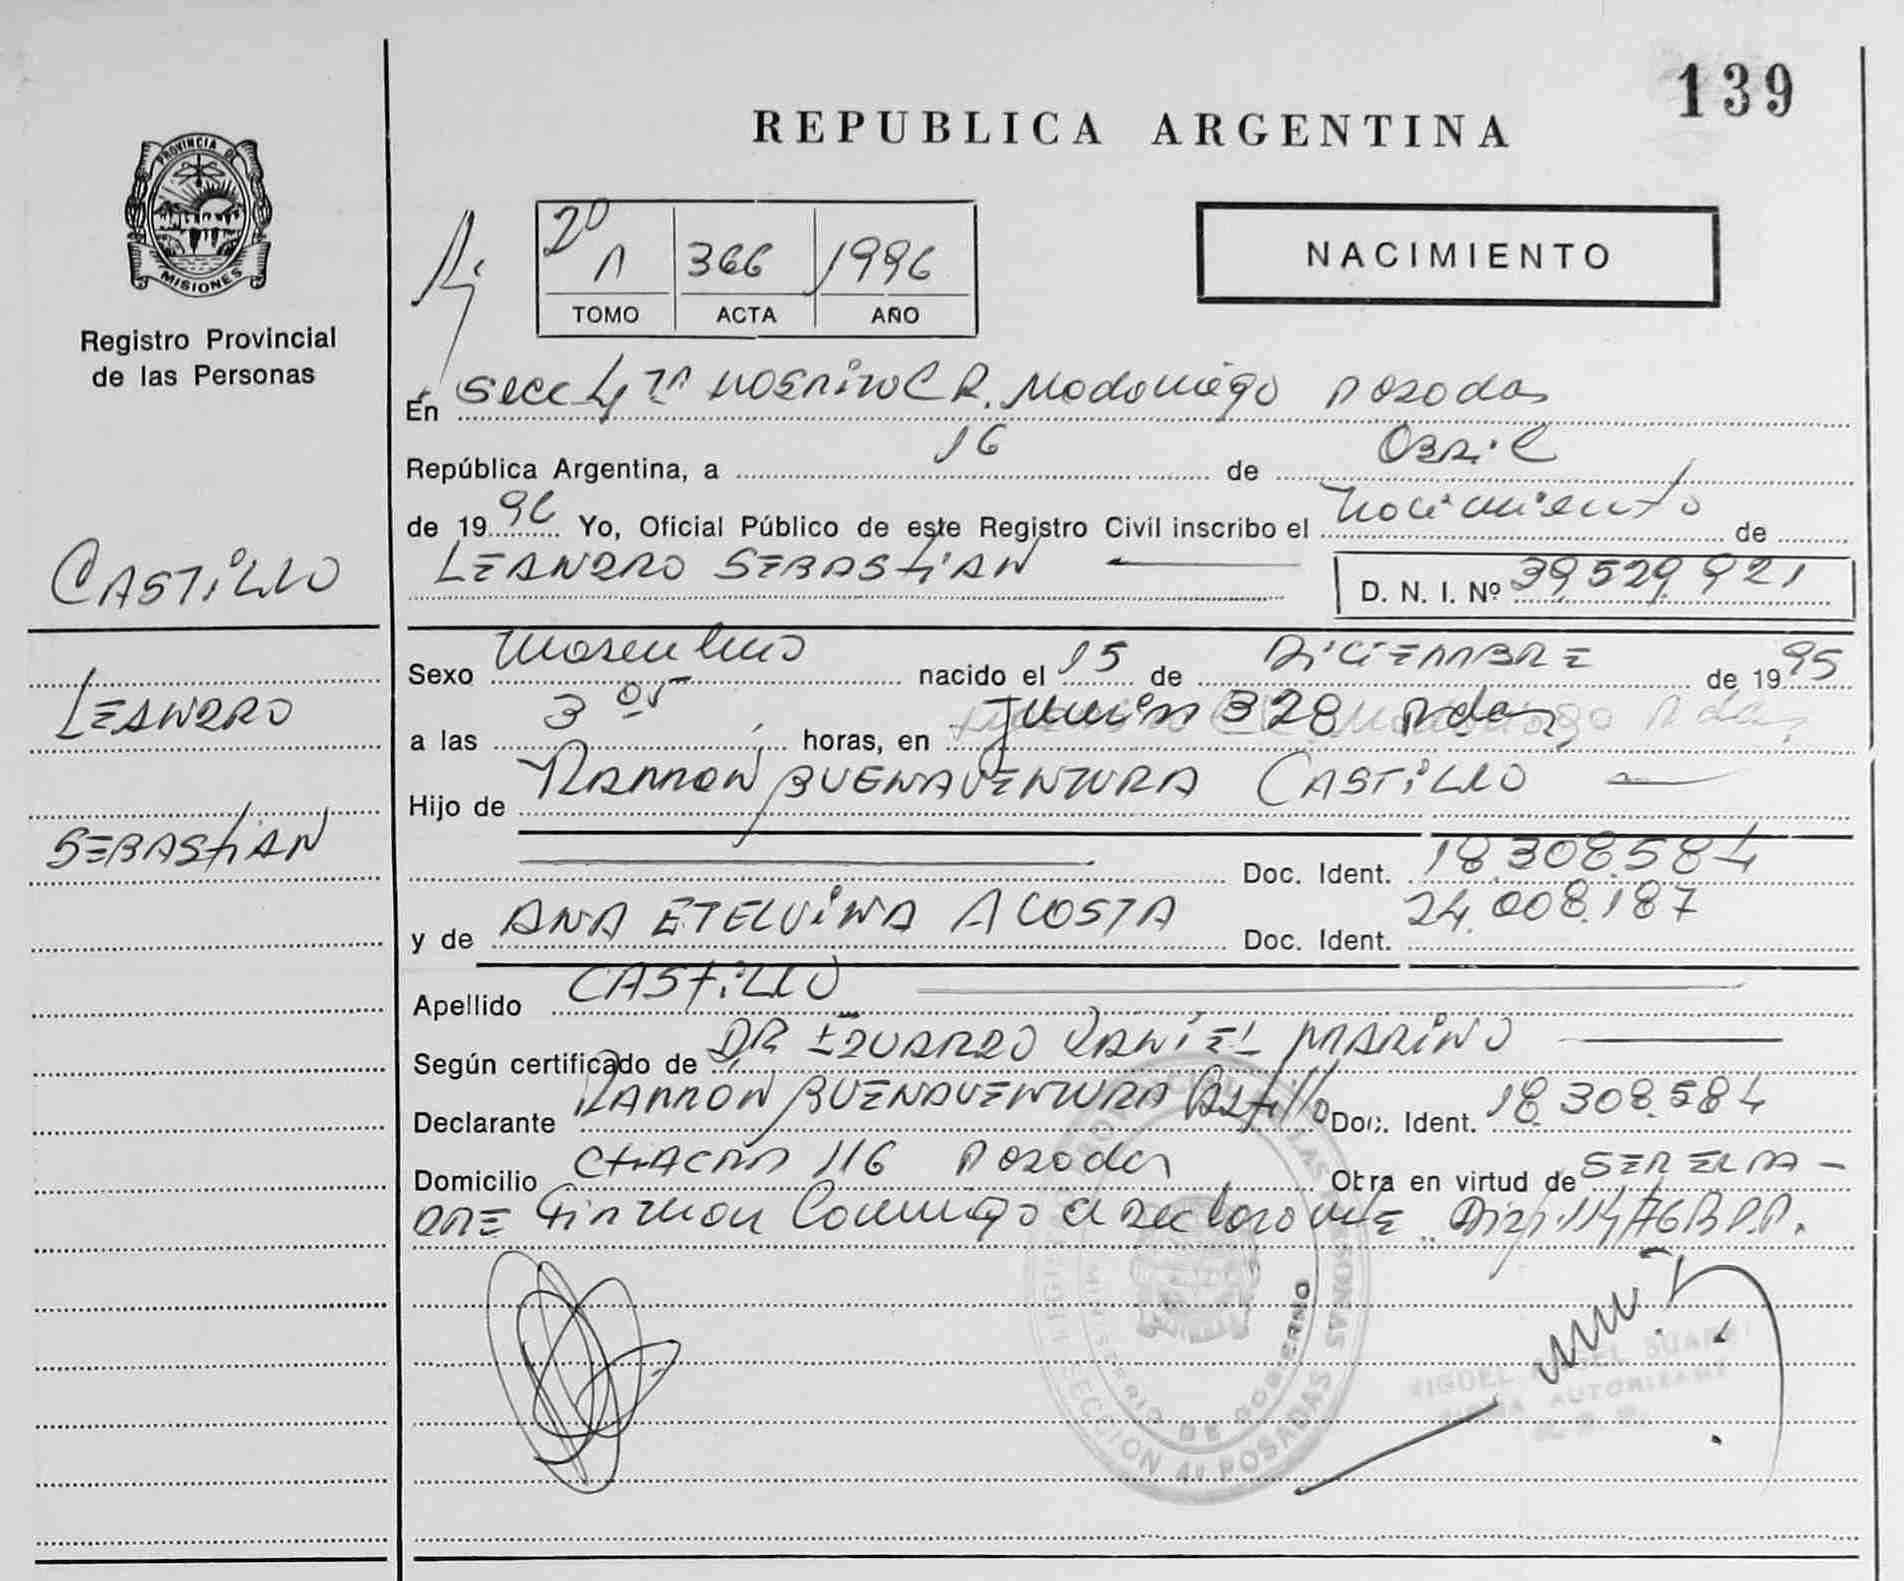 139
REPUBLICA ARGENTINA
PROVINCIA DE
MISIONES
Registro Provincial
de las Personas
2º A 366 1996
TOMO ACTA AÑO
NACIMIENTO
En Secc 4ta R. Madariaga Posadas
República Argentina, a 16 de Abril
de 1996 Yo, Oficial Público de este Registro Civil inscribo el Nacimiento de
LEANDRO SEBASTIAN D. N. I. Nº 39.529.921
CASTILLO
LEANDRO
SEBASTIAN
Sexo Masculino nacido el 15 de DICIEMBRE de 1995
a las 3 05 horas, en Junin 328 Pdas
Hijo de RAMON BUENAVENTURA CASTILLO
Doc. Ident. 18.308.584
y de ANA ETELVINA ACOSTA Doc. Ident. 24.008.187
Apellido CASTILLO
Según certificado de DR EDUARDO DANIEL MARINO
Declarante RAMON BUENAVENTURA Castillo Doc. Ident. 18.308.584
Domicilio CHACRA 116 Posadas Otra en virtud de SER EL PA-
DRE Firman Conmigo el declarante Disp. 114/76 R.P.P.
REGISTRO PROVINCIAL DE LAS PERSONAS
MINISTERIO DE GOBIERNO
SECCION 4º POSADAS
MIGUEL ANGEL SUAREZ
FIRMA AUTORIZADA